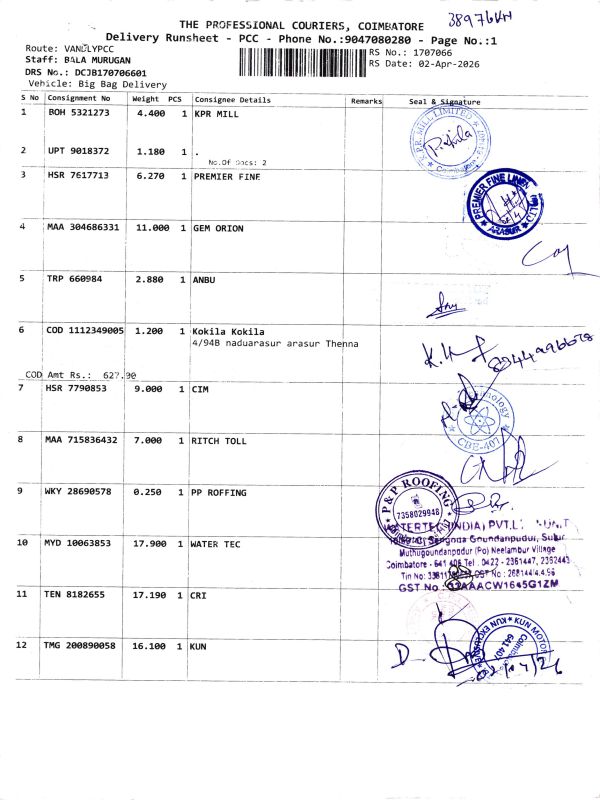 38976KM
THE PROFESSIONAL COURIERS, COIMBATORE
Delivery Runsheet - PCC - Phone No.:9047080280 - Page No.:1
Route: VANDLYPCC
RS No.: 1707066
Staff: BALA MURUGAN
RS Date: 02-Apr-2026
DRS No.: DCJB170706601
Vehicle: Big Bag Delivery
S No Consignment No Weight PCS Consignee Details Remarks Seal & Signature
1 BOH 5321273 4.400 1 KPR MILL
2 UPT 9018372 1.180 1 .
No.Of Docs: 2
3 HSR 7617713 6.270 1 PREMIER FINE
PREMIER FINE LINEN
ARASUR
4 MAA 304686331 11.000 1 GEM ORION
5 TRP 660984 2.880 1 ANBU
6 COD 1112349005 1.200 1 Kokila Kokila
4/94B naduarasur arasur Thenna
COD Amt Rs.: 627.00
7 HSR 7790853 9.000 1 CIM
CBE-407
8 MAA 715836432 7.000 1 RITCH TOLL
9 WKY 28690578 0.250 1 PP ROFFING
P&P ROOFING
7358029948
10 MYD 10063853 17.900 1 WATER TEC
WATERTEC (INDIA) PVT.LT UNIT
Goundanpudur, Sulur
Muthugoundanpudur (Po) Neelambur Village
Coimbatore - 641 406 Tel : 0422 - 2361447, 2362443
GST No : 33AAACW1645G1ZM
11 TEN 8182655 17.190 1 CRI
12 TMG 200890058 16.100 1 KUN
KUN MOTOR
641 407
02/04/26